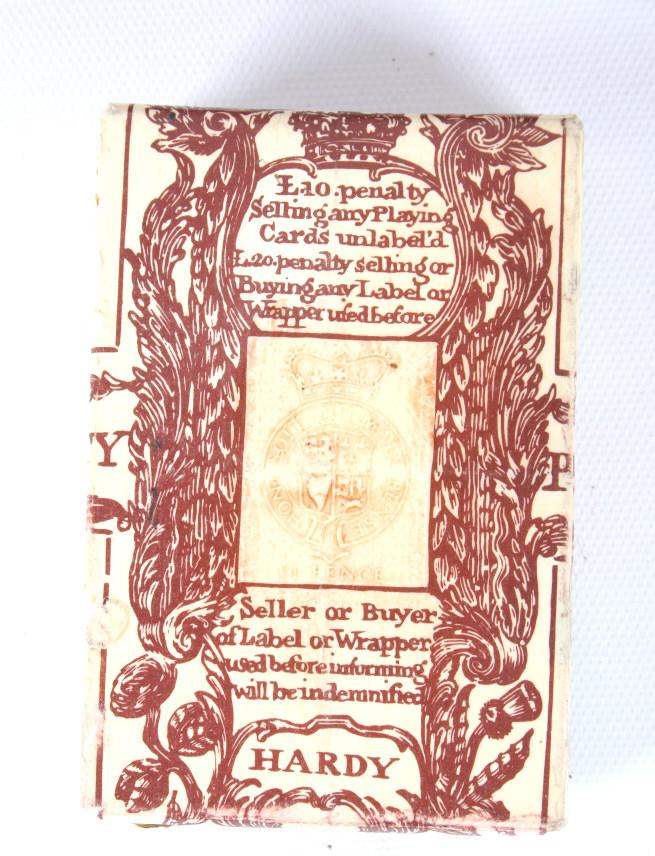 £.10.penalty
Selling any Playing
Cards unlabel'd
£.20.penalty selling or
Buying any Label or
Wrapper used before
HONI SOIT QUI MAL Y PENSE
PENCE
Seller or Buyer
of Label or Wrapper
used before informing
will be indemnified
HARDY
Y
P